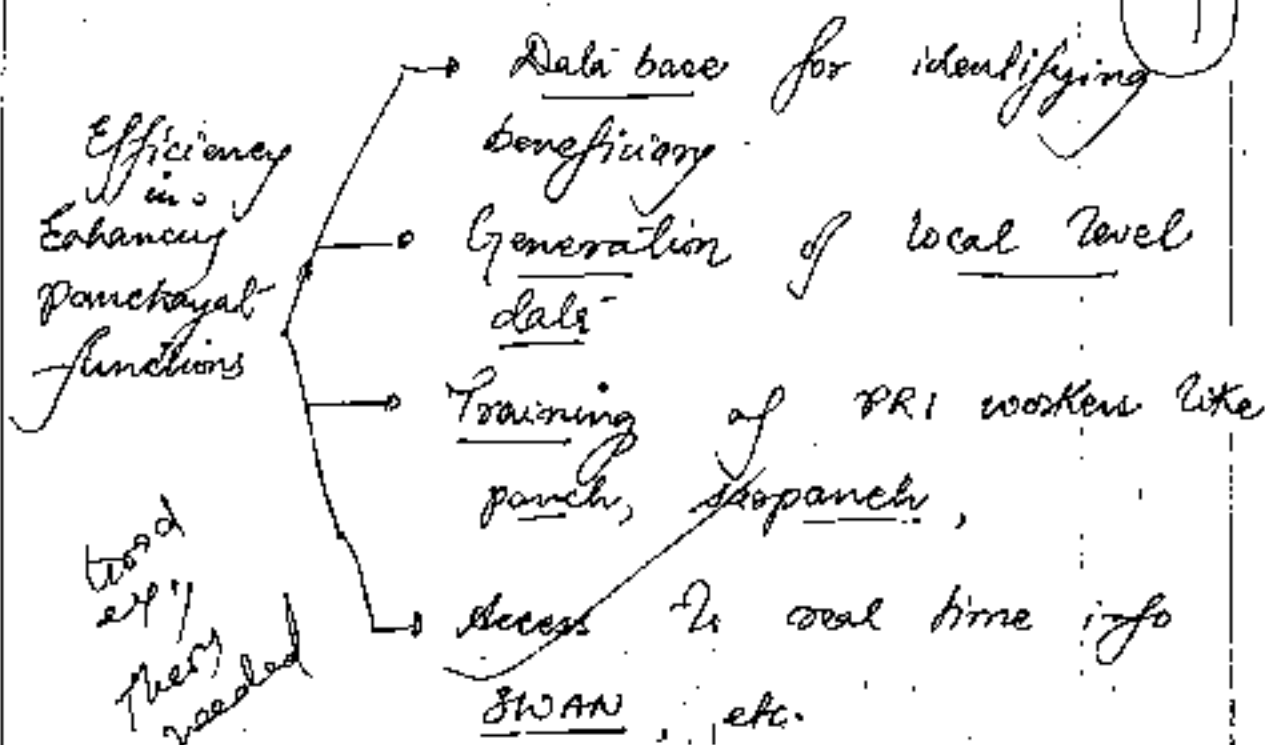 Efficiency
in
Enhancing
panchayat
functions
Data base for identifying
beneficiary
Generation of local level
data
Training of PRI workers like
panch, sarpanch,
Access to real time info
SWAN, etc.
needed